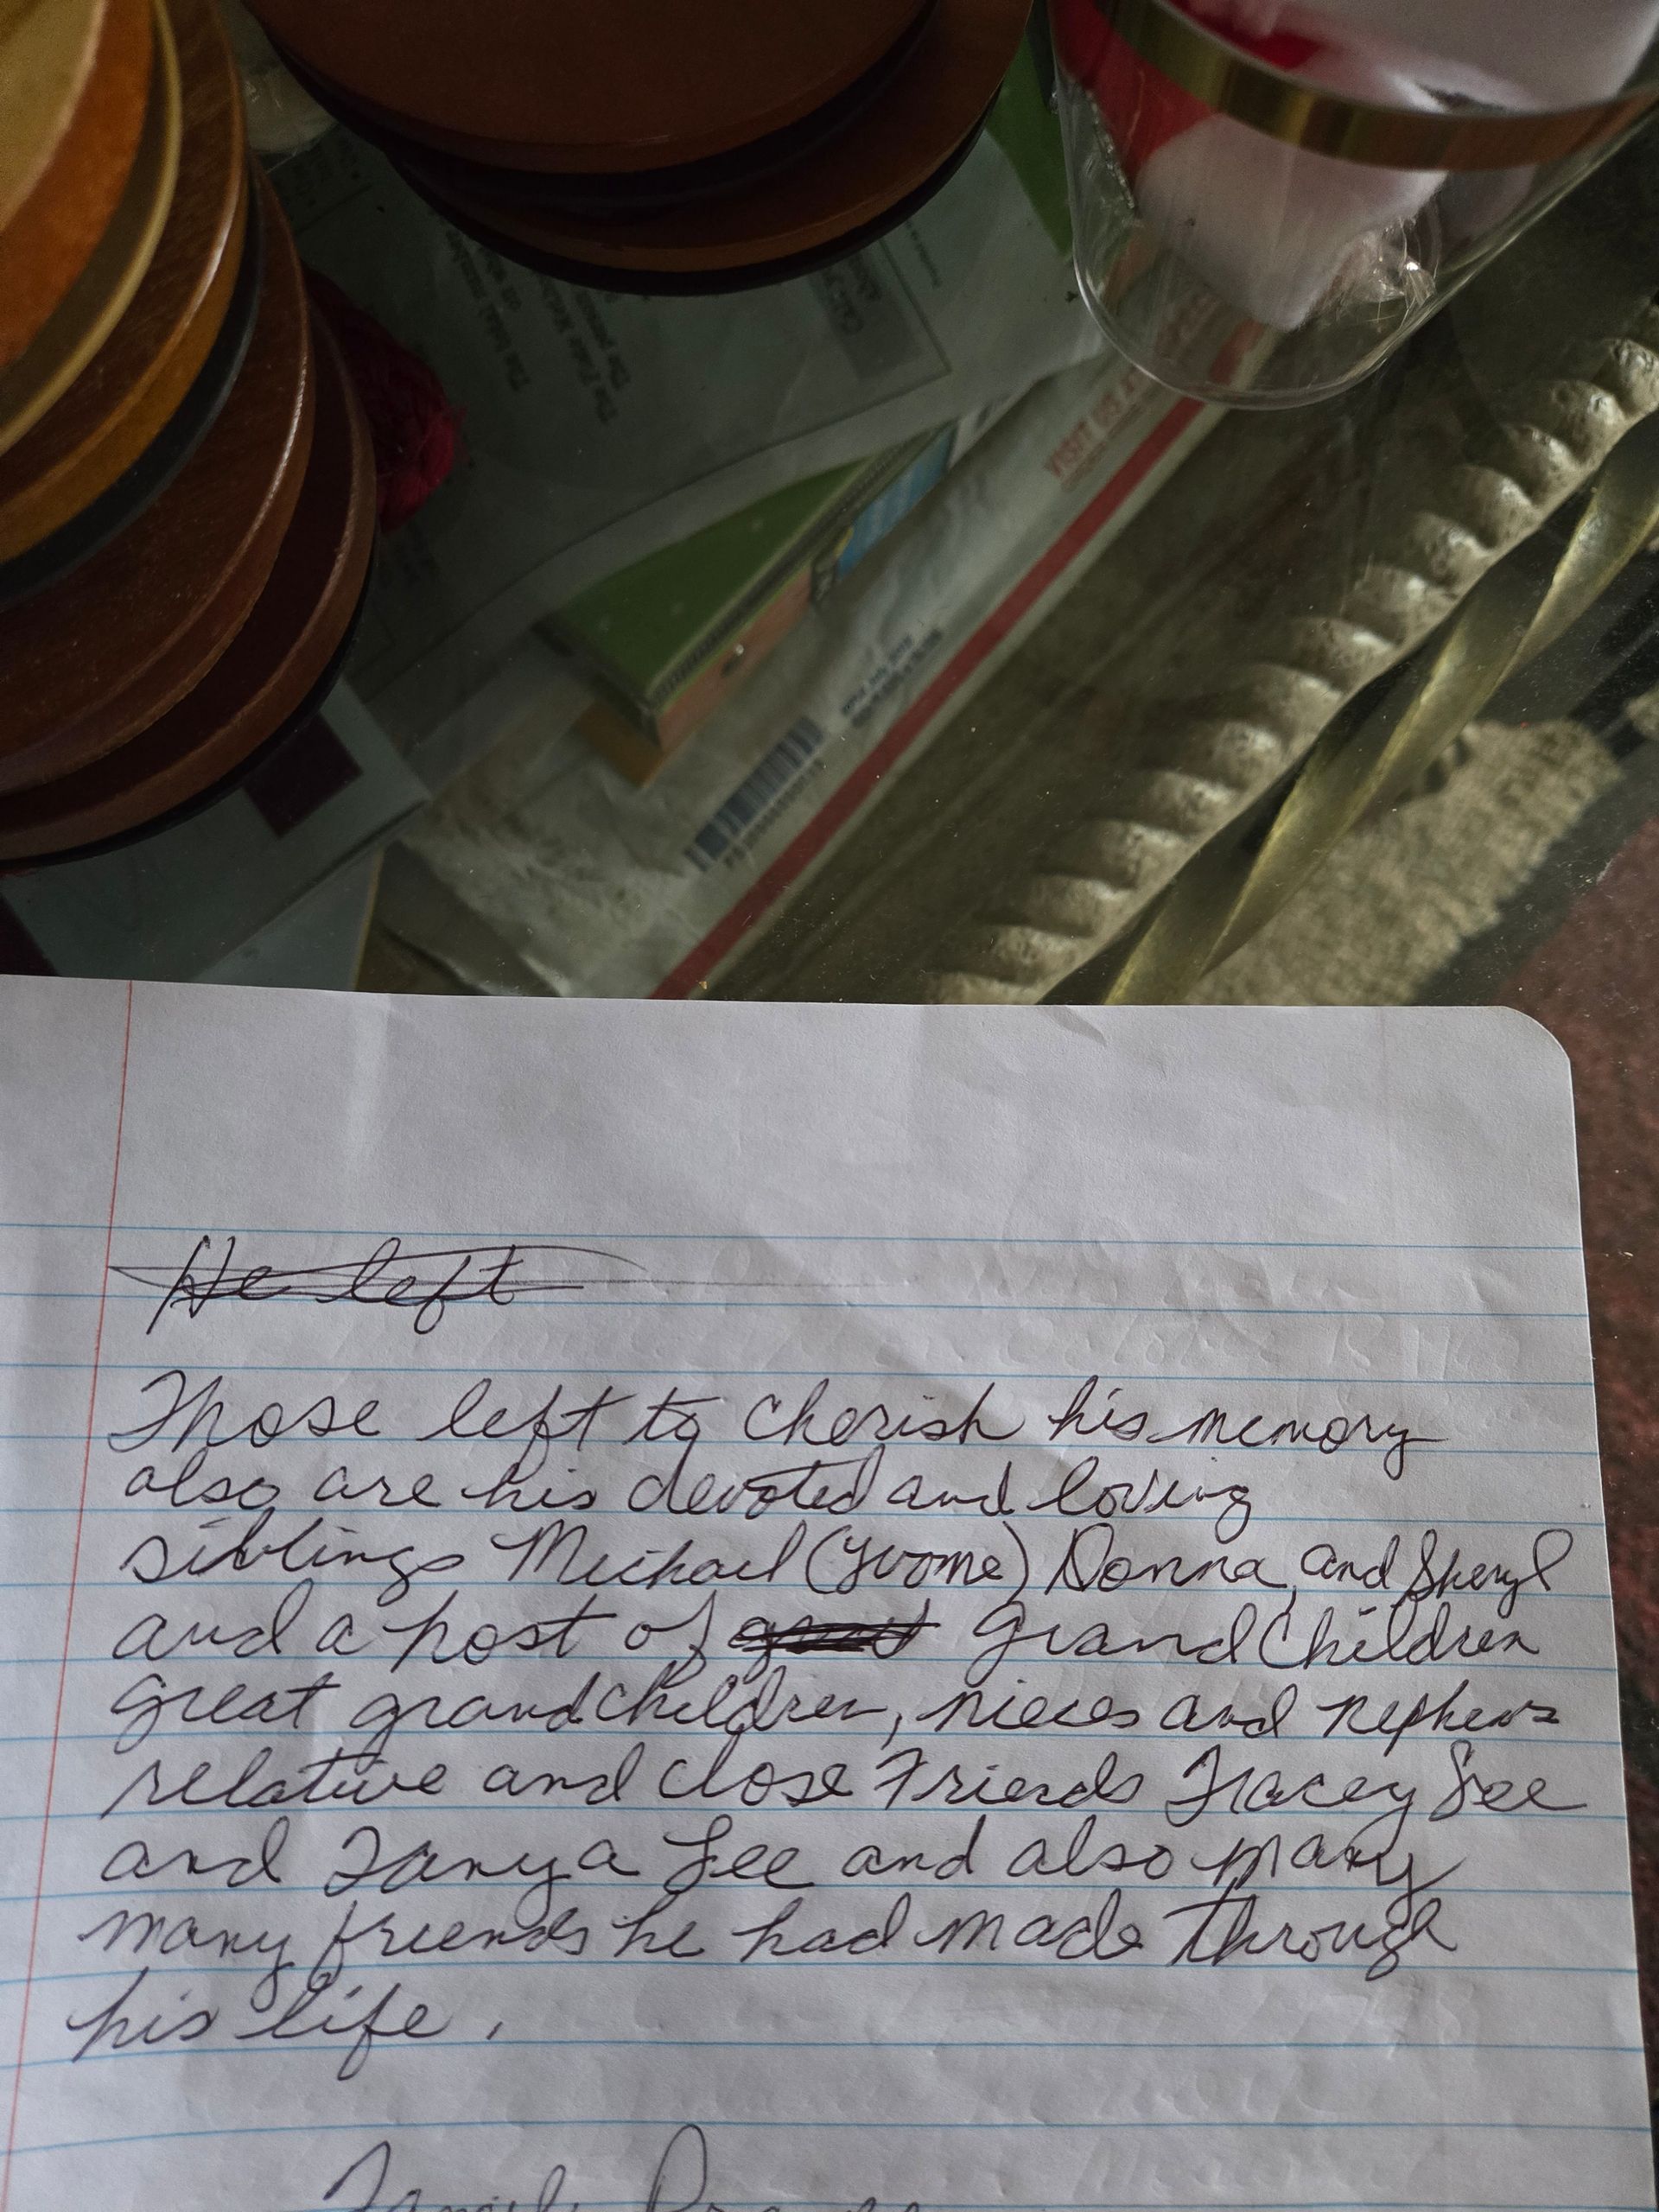 VISIT US AT
He left
Those left to cherish his memory
also are his devoted and loving
siblings Michael (Yvonne) Donna, and Sheryl
and a host of great grandchildren
great grandchildren, nieces and nephews
relative and close Friends Tracey Lee
and Tanya Lee and also many
many friends he had made through
his life.
Family